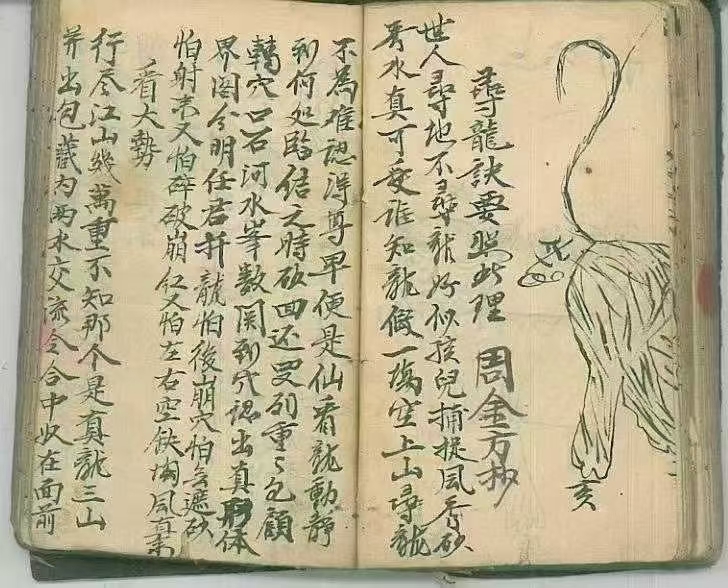 戌
亥
尋龍訣要照此理 周金方抄
世人尋地不尋龍好似孩兒捕捉風秀砂
秀水真可愛誰知龍假一塲空上山尋龍
不為难認得尊卑便是仙看龍動静
到何処臨结之時砂回还四列重〻包顧
轉穴口石河水峯数関到穴認出真形体
界图分明任君扦龍怕後崩穴怕無遮砂
怕射末又怕碎破崩红又怕左右空缺塲風
看大勢
行尽江山幾萬重不知那个是真龍三山
并出包藏内两水交流会合中奴在面前